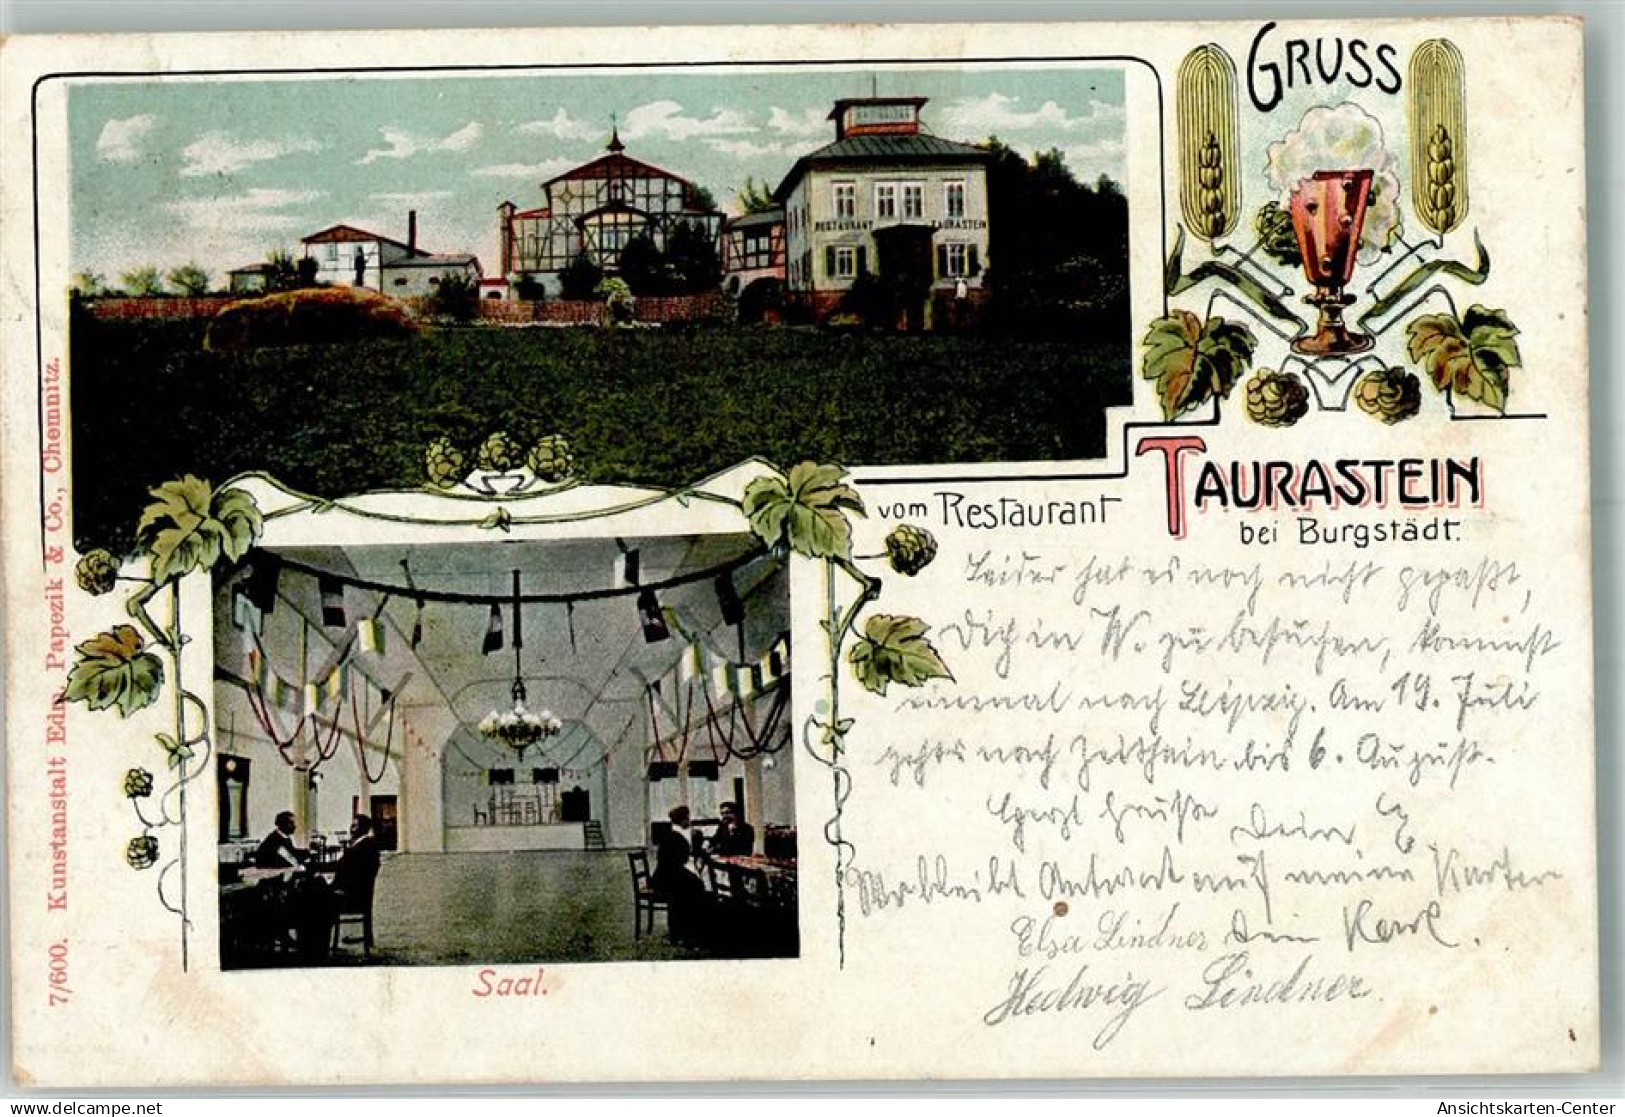 GRUSS
RESTAURANT TAURASTEIN
vom Restaurant TAURASTEIN
bei Burgstädt.
Leider hat es noch nicht gepaßt,
Dich in W. zu besuchen, kommst
einmal nach Leipzig. Am 19. Juli
gehts nach Zeithain bis 6. August.
Herzl Grüße Dein
Wo bleibt Antwort auf meine Karten
Elsa Lindner Dein Karl.
Hedwig Lindner.
Saal.
7/600. Kunstanstalt Edm. Papezik & Co., Chemnitz.
Ansichtskarten-Center